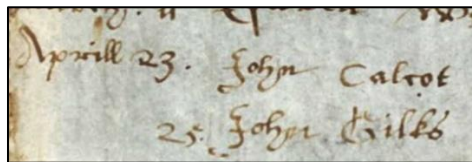 Aprill 23. John Calcot
25. John Gilks